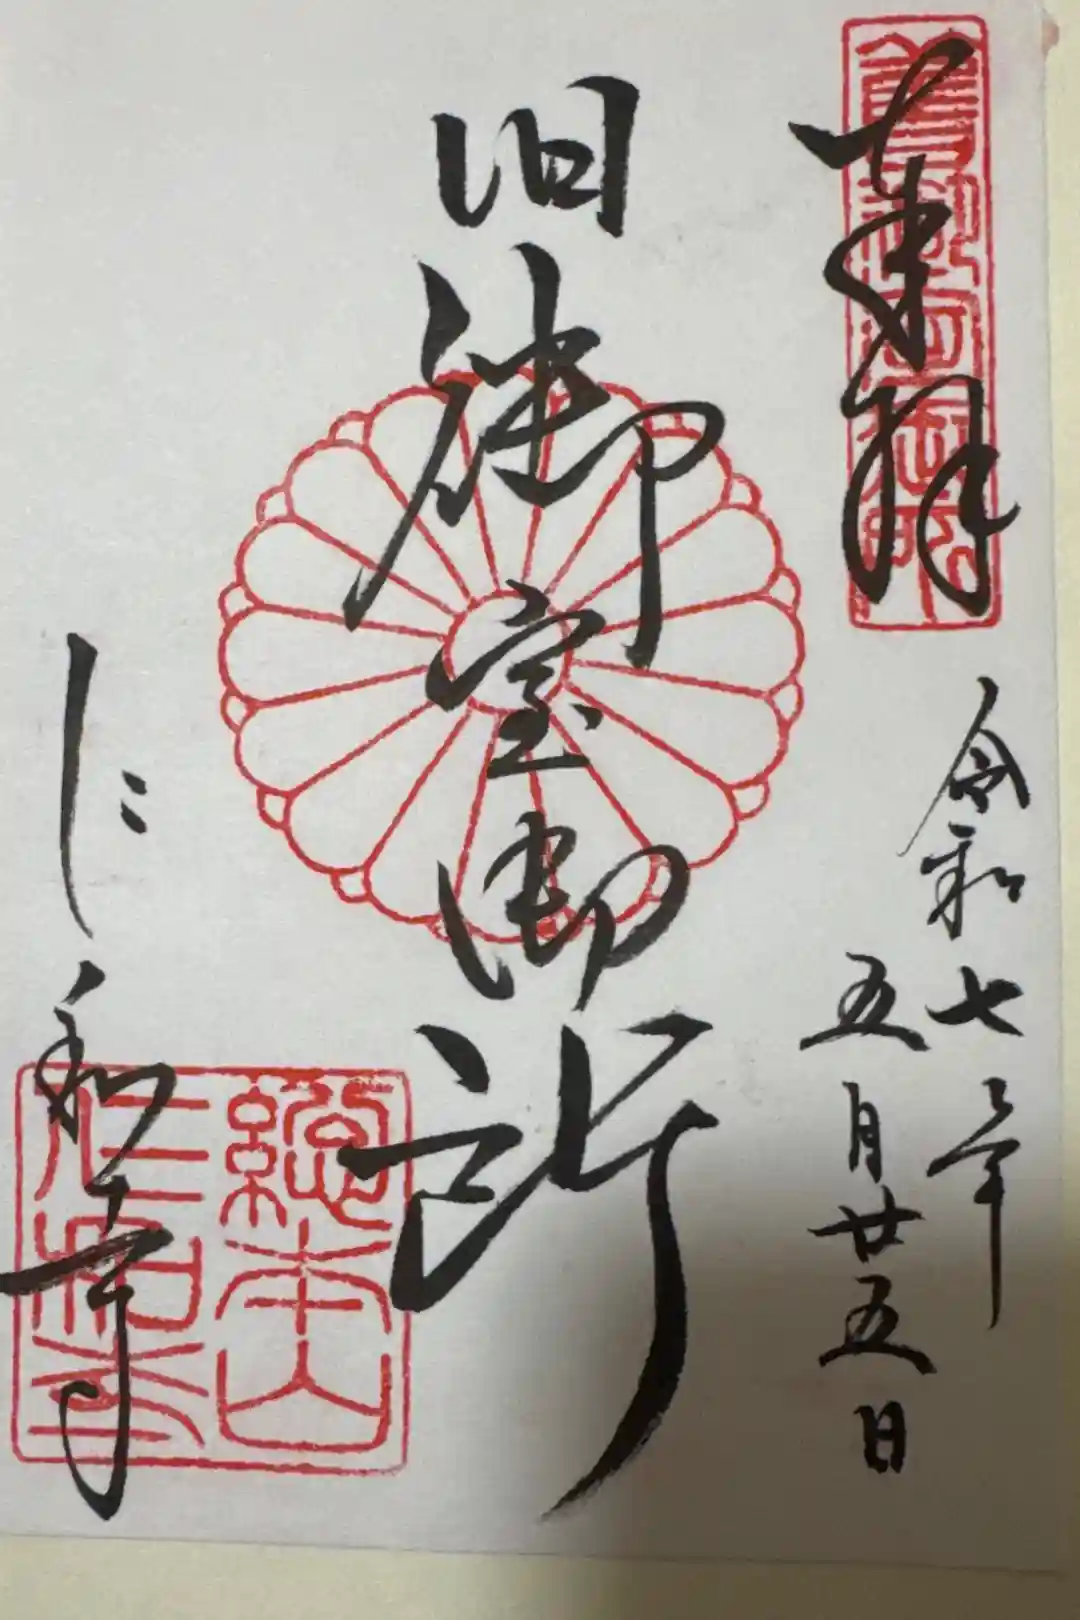 奉拝
令和七年
五月廿五日
旧御室御所
仁和寺
總本山
仁和寺